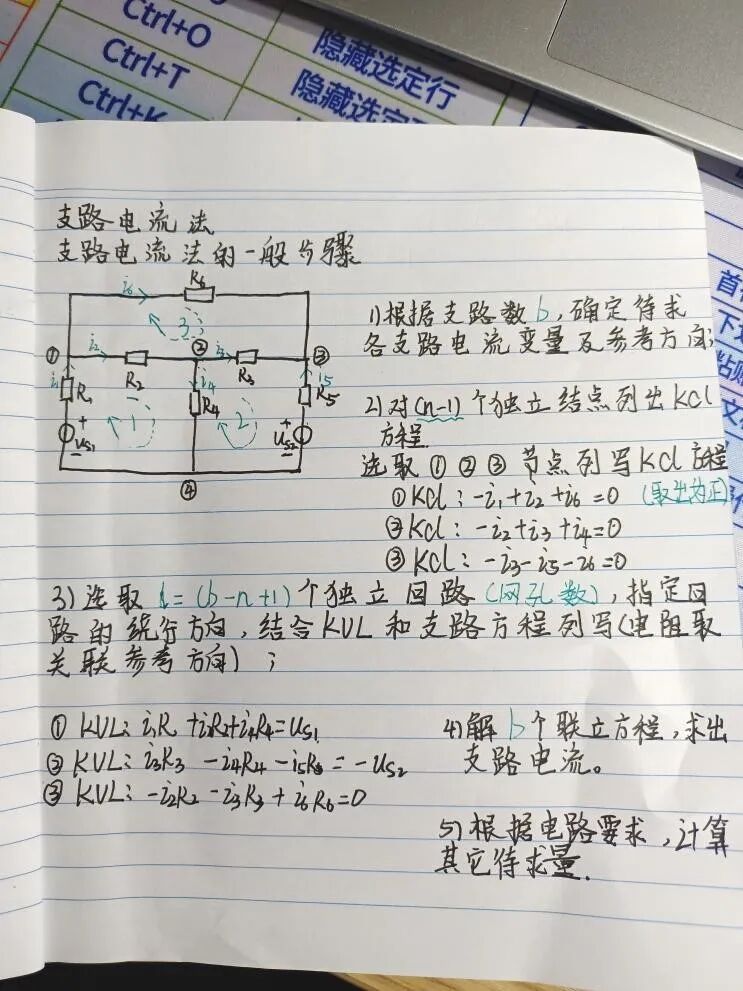 Ctrl+O
隐藏选定行
Ctrl+T
Ctrl+K
支路电流法
支路电流法的一般步骤
i6 R6
3
① i2 R2 ② i3 R3 ③
i1 R1 i4 R4 i5 R5
1 2
+ US1 + US2
④
1)根据支路数b,确定待求
各支路电流变量及参考方向;
2)对(n-1)个独立结点列出KCl
方程
选取①②③节点列写KCl方程
①KCl:-i1+i2+i6=0 (取出为正)
②KCl:-i2+i3+i4=0
③KCl:-i3-i5-i6=0
3)选取l=(b-n+1)个独立回路(网孔数),指定回
路的绕行方向,结合KVL和支路方程列写(电阻取
关联参考方向);
① KVL:i1R +i2R2+i4R4=US1
② KVL:i3R3 -i4R4 -i5R5 = -US2
③ KVL:-i2R2 -i3R3 + i6R6=0
4)解b个联立方程,求出
支路电流。
5)根据电路要求,计算
其它待求量.